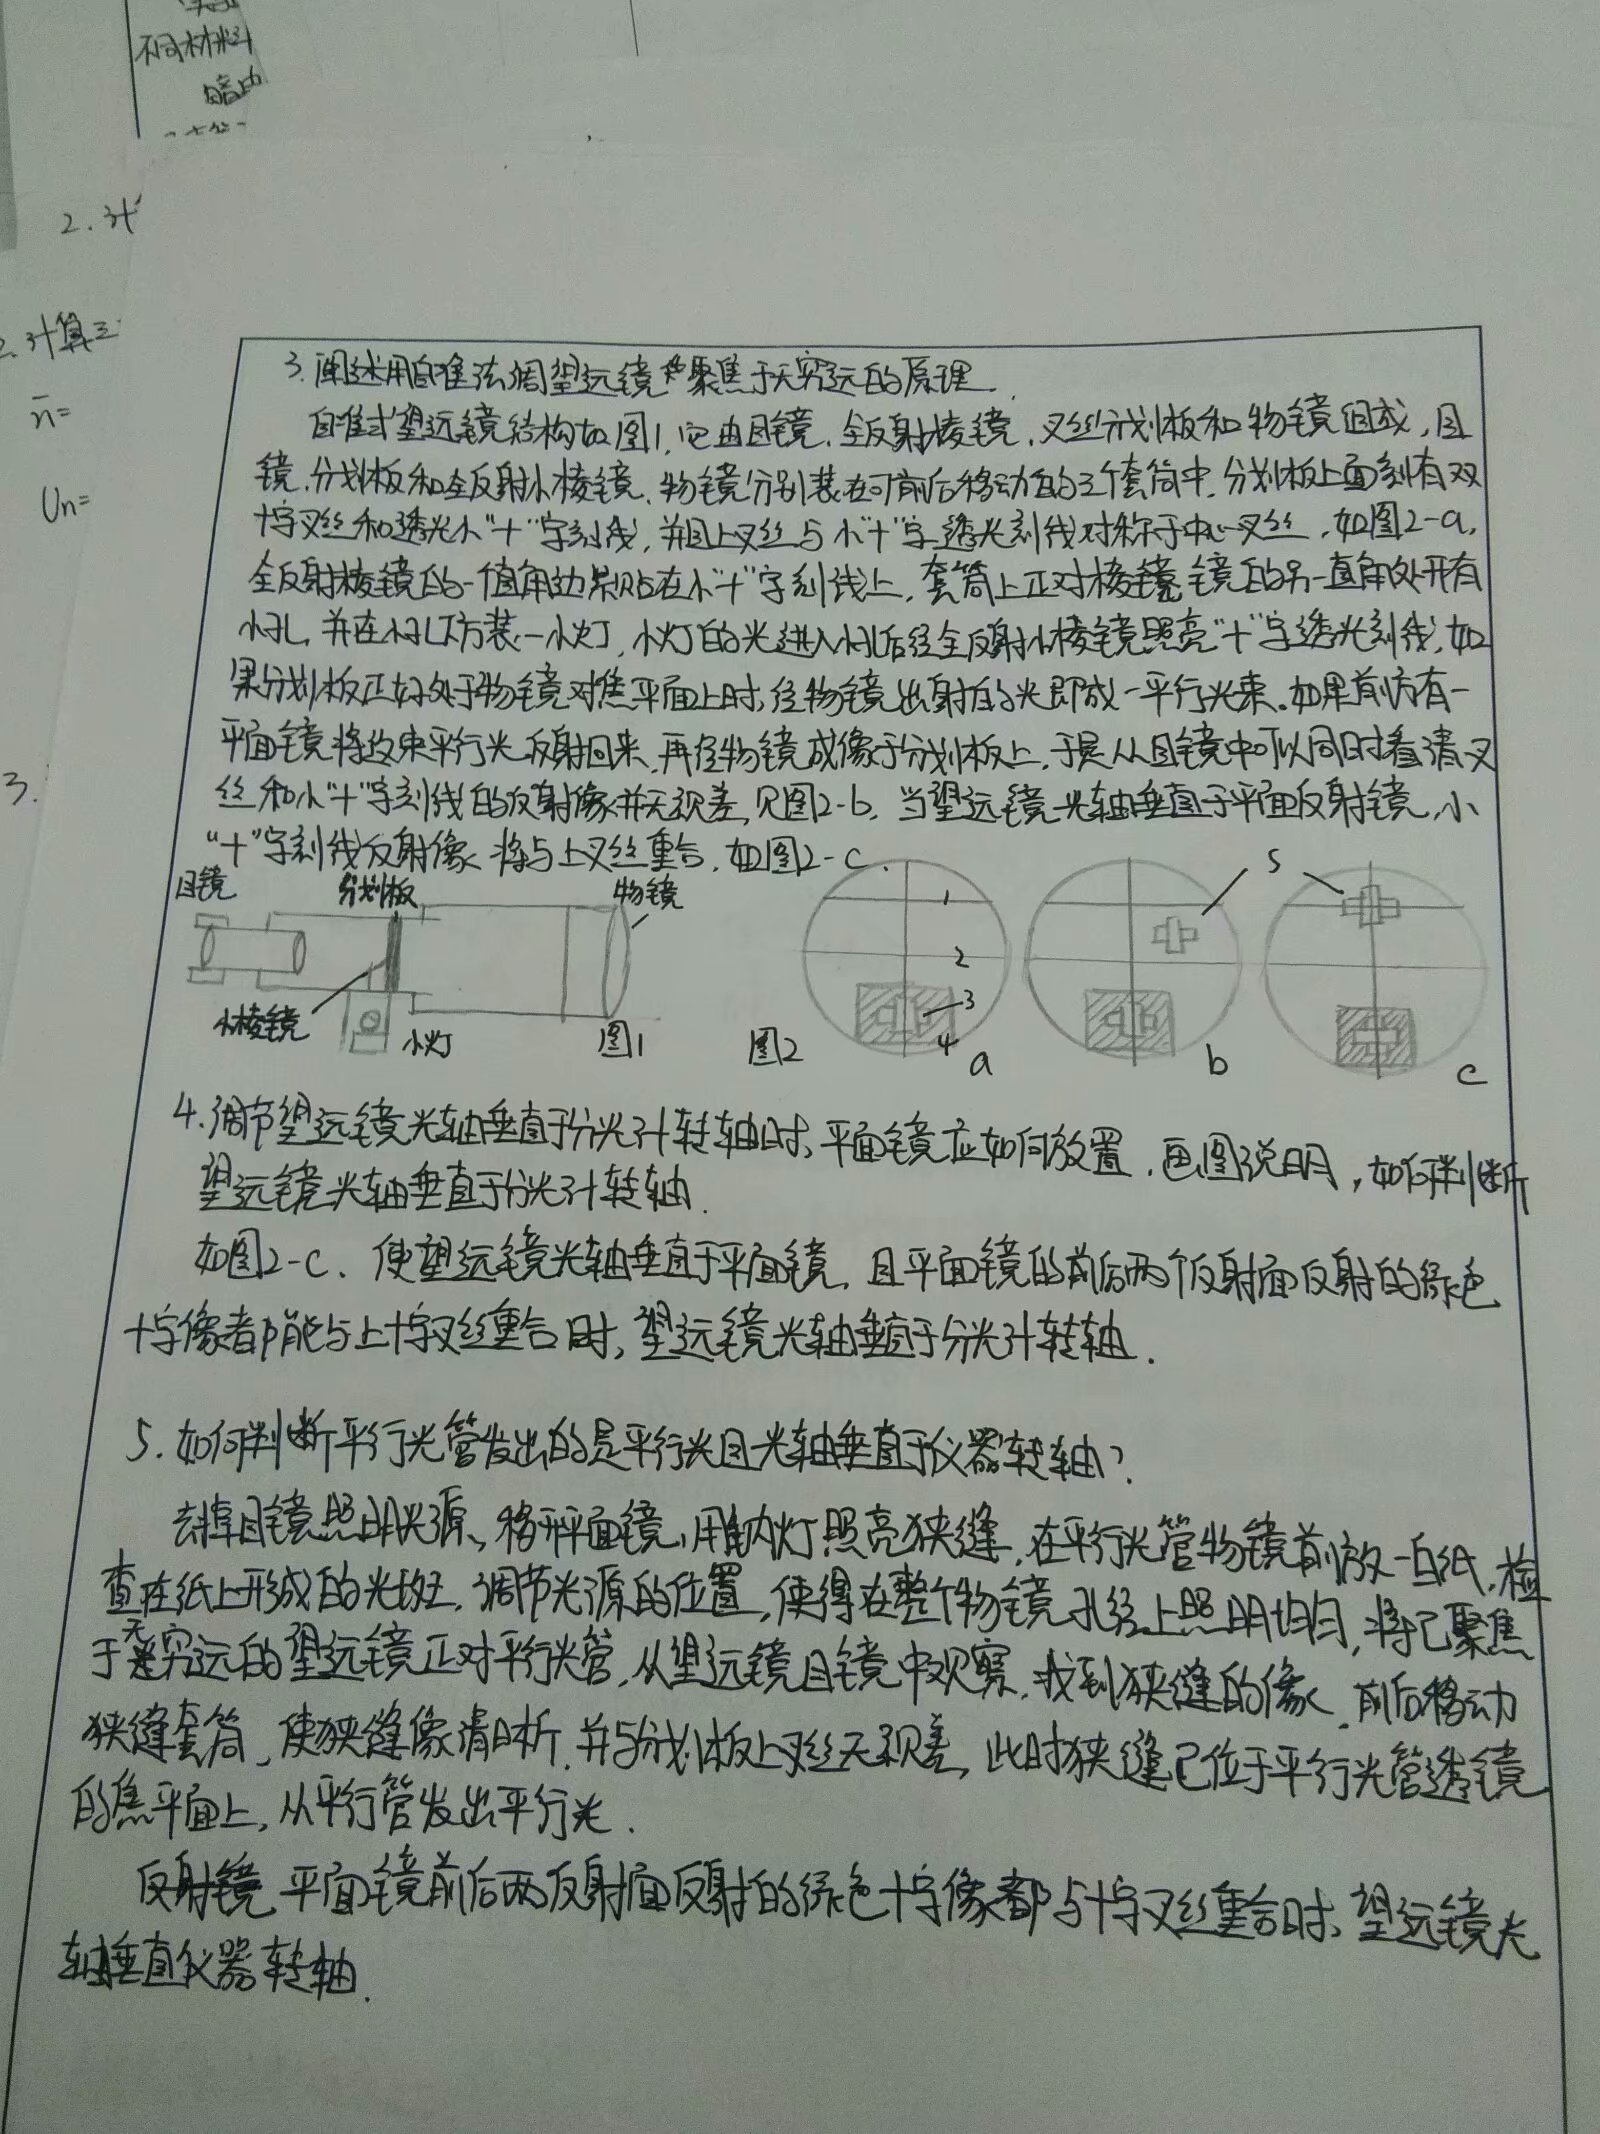 不同材料
2.计
2.计算三
n̄=
Un=
3.
3.阐述用自准法调望远镜聚焦于无穷远的原理.
自准式望远镜结构如图1,它由目镜.全反射棱镜.叉丝分划板和物镜组成,目
镜.分划板和全反射小棱镜.物镜分别装在可前后移动的三个套筒中.分划板上面刻有双
十字叉丝和透光小"十"字刻线,并且上叉丝与小"十"字透光刻线对称于中心叉丝,如图2-a,
全反射棱镜的一值角边紧贴在小"十"字刻线上,套筒上正对棱镜镜的另一直角处开有
小孔,并在小孔下方装一小灯,小灯的光进入小孔后经全反射小棱镜照亮"十"字透光刻线,如
果分划板正好处于物镜对焦平面上时,经物镜出射的光即成一平行光束.如果前方有一
平面镜将这束平行光反射回来,再经物镜成像于分划板上,于是从目镜中可以同时看清叉
丝和小"十"字刻线的反射像并无视差,见图2-b,当望远镜光轴垂直于平面反射镜,小
"十"字刻线反射像将与上叉丝重合,如图2-c.
目镜 分划板 物镜
小棱镜 小灯 图1
图2 1 2 3 4 a b 5 c
4.调节望远镜光轴垂直于分光计转轴时,平面镜应如何放置.画图说明,如何判断
望远镜光轴垂直于分光计转轴.
如图2-c.使望远镜光轴垂直于平面镜,且平面镜的前后两个反射面反射的绿色
十字像都能与上十字叉丝重合时,望远镜光轴垂直于分光计转轴.
5.如何判断平行光管发出的是平行光且光轴垂直于仪器转轴?
去掉目镜照明光源,移开平面镜,用钠灯照亮狭缝,在平行光管物镜前放一白纸,检
查在纸上形成的光斑,调节光源的位置,使得在整个物镜孔径上照明均匀,将已聚焦
于无穷远的望远镜正对平行光管,从望远镜目镜中观察,找到狭缝的像,前后移动
狭缝套筒,使狭缝像清晰,并与分划板上叉丝无视差,此时狭缝已位于平行光管透镜
的焦平面上,从平行管发出平行光.
反射镜平面镜前后两反射面反射的绿色十字像都与十字叉丝重合时,望远镜光
轴垂直仪器转轴.